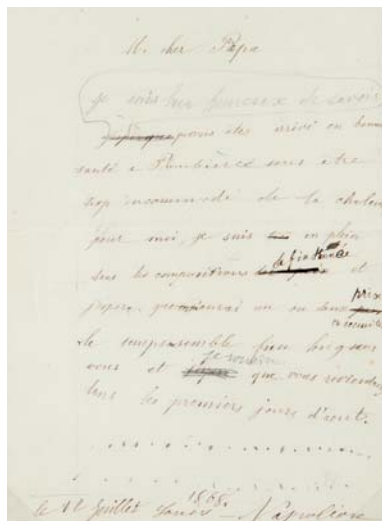 M. cher Papa
je suis bien heureux de savoir
que vous êtes arrivé en bonne
santé à Plombières sans être
trop incommodé de la chaleur
pour moi, je suis en plein
dans les compositions de fin d'année et
j'espère que j'aurai un ou deux prix
le temps me semble bien long sans
vous et je que vous reviendrez
dans les premiers jours d'août.
le 12 Juillet 1868. Napoléon